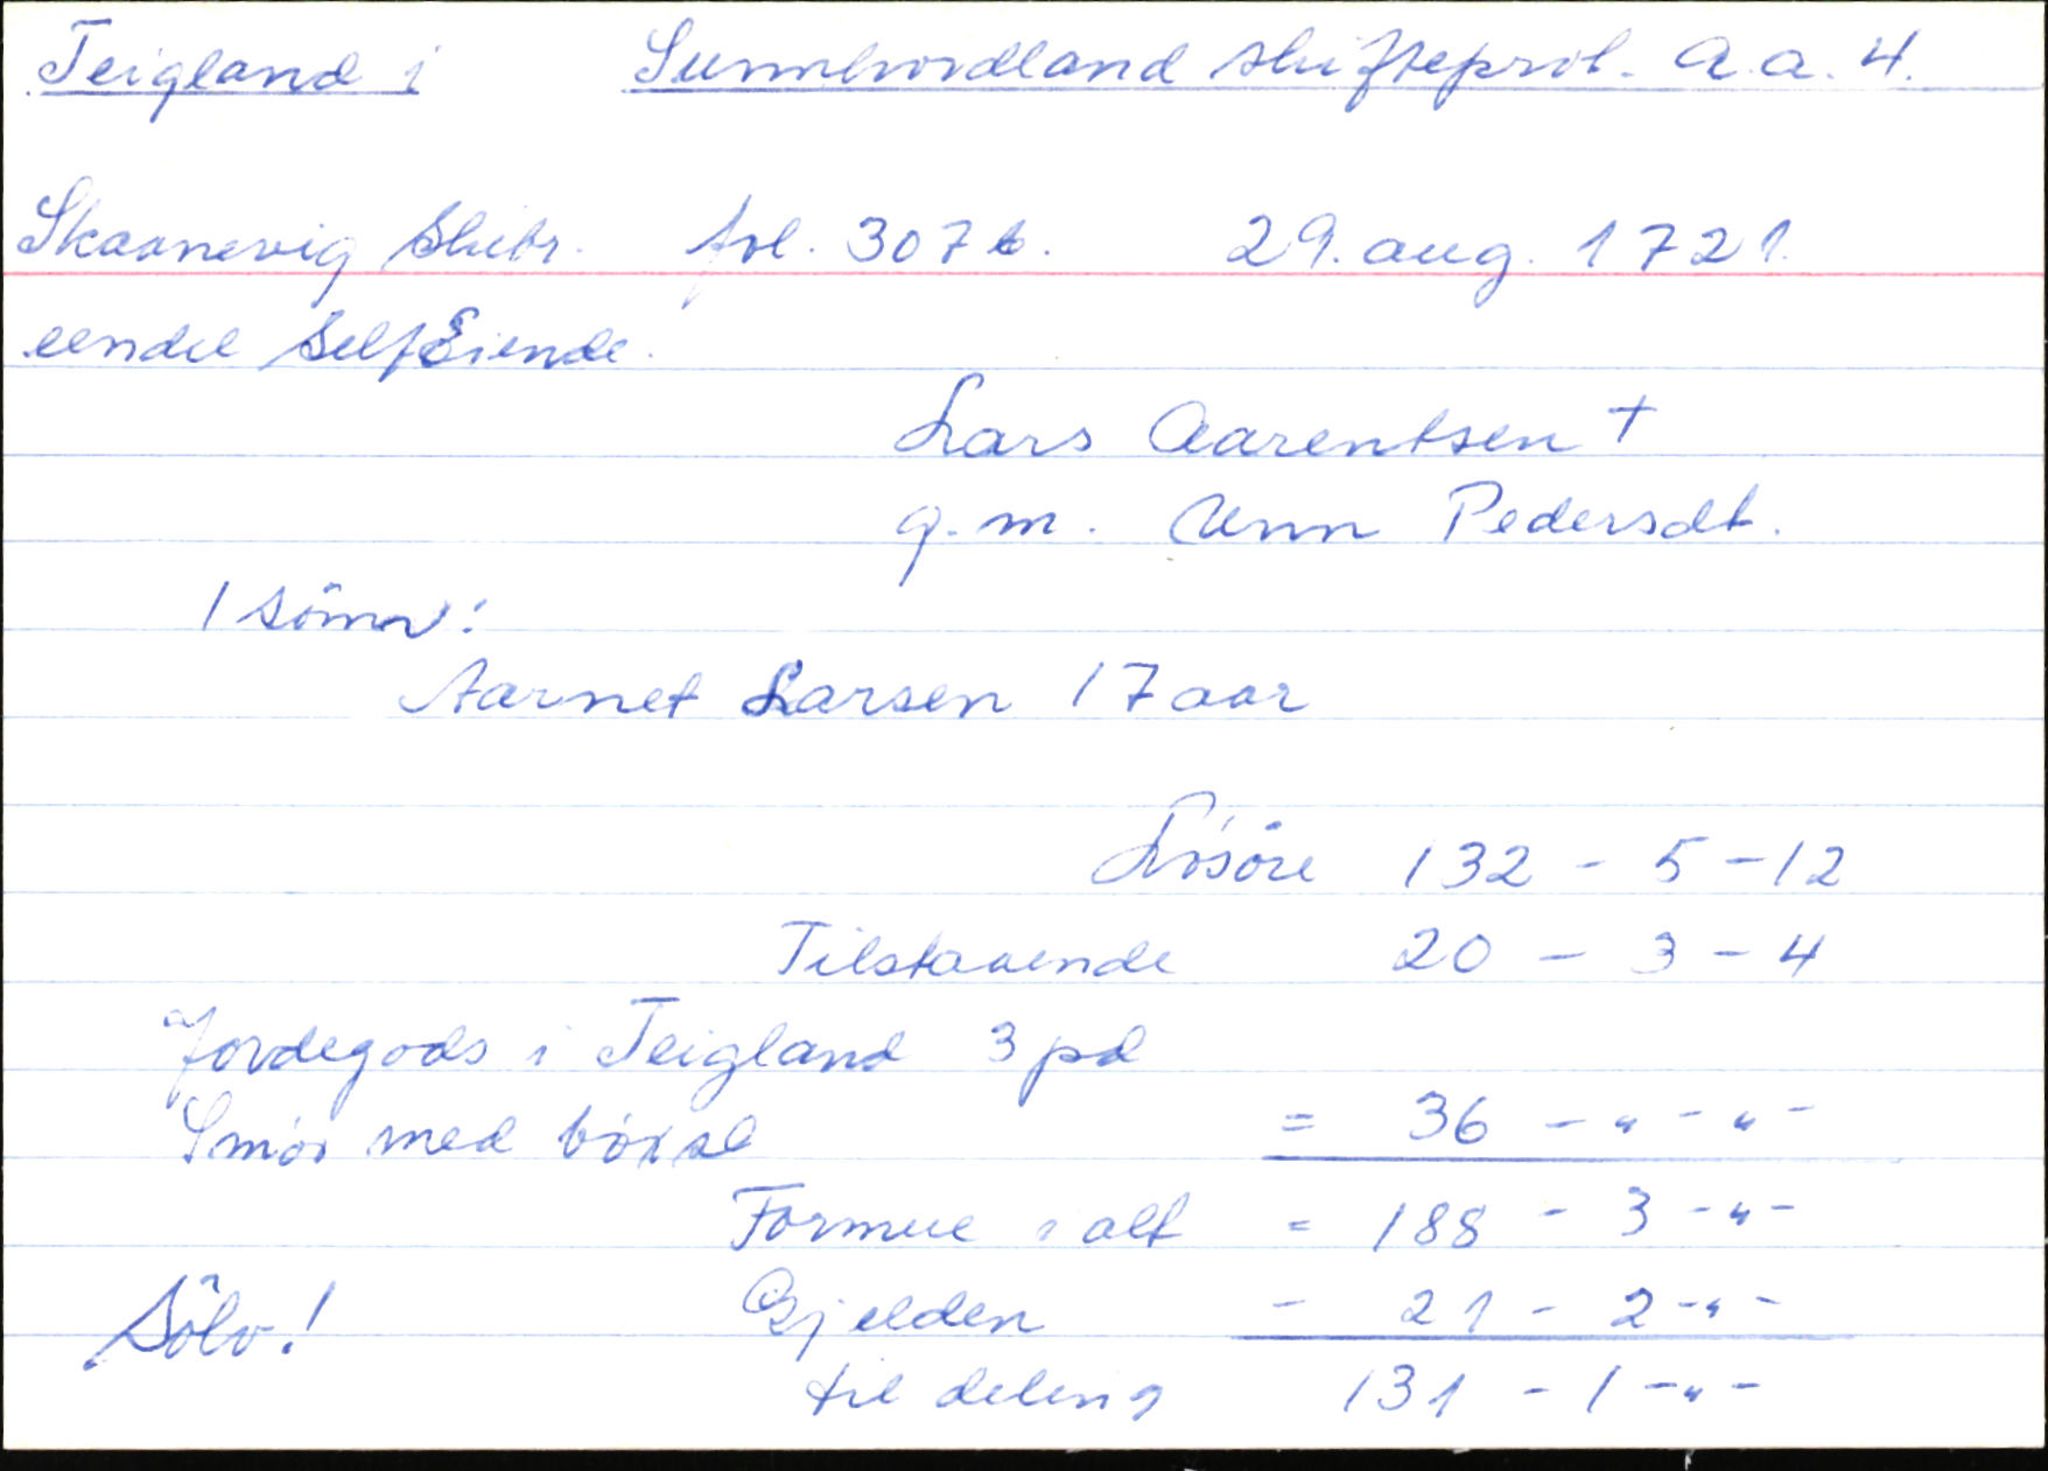 Teigland i Sunnhordland skifteprot. A.a. 4.
Skaanevig Skibr. fol. 307b. 29. aug. 1721.
eendel SelfEiende.
Lars Aarentsen †
g.m. Ann Pedersdt.
1 sönn:
Aarnet Larsen 17 aar
Lösöre 132 - 5 - 12
Tilstaaende 20 - 3 - 4
Jordegods i Teigland 3 pd
Smör med böxel = 36 - " - " -
Formue i alt = 188 - 3 - " -
Sölv! Gjelden - 21 - 2 - " -
til deling 131 - 1 - " -